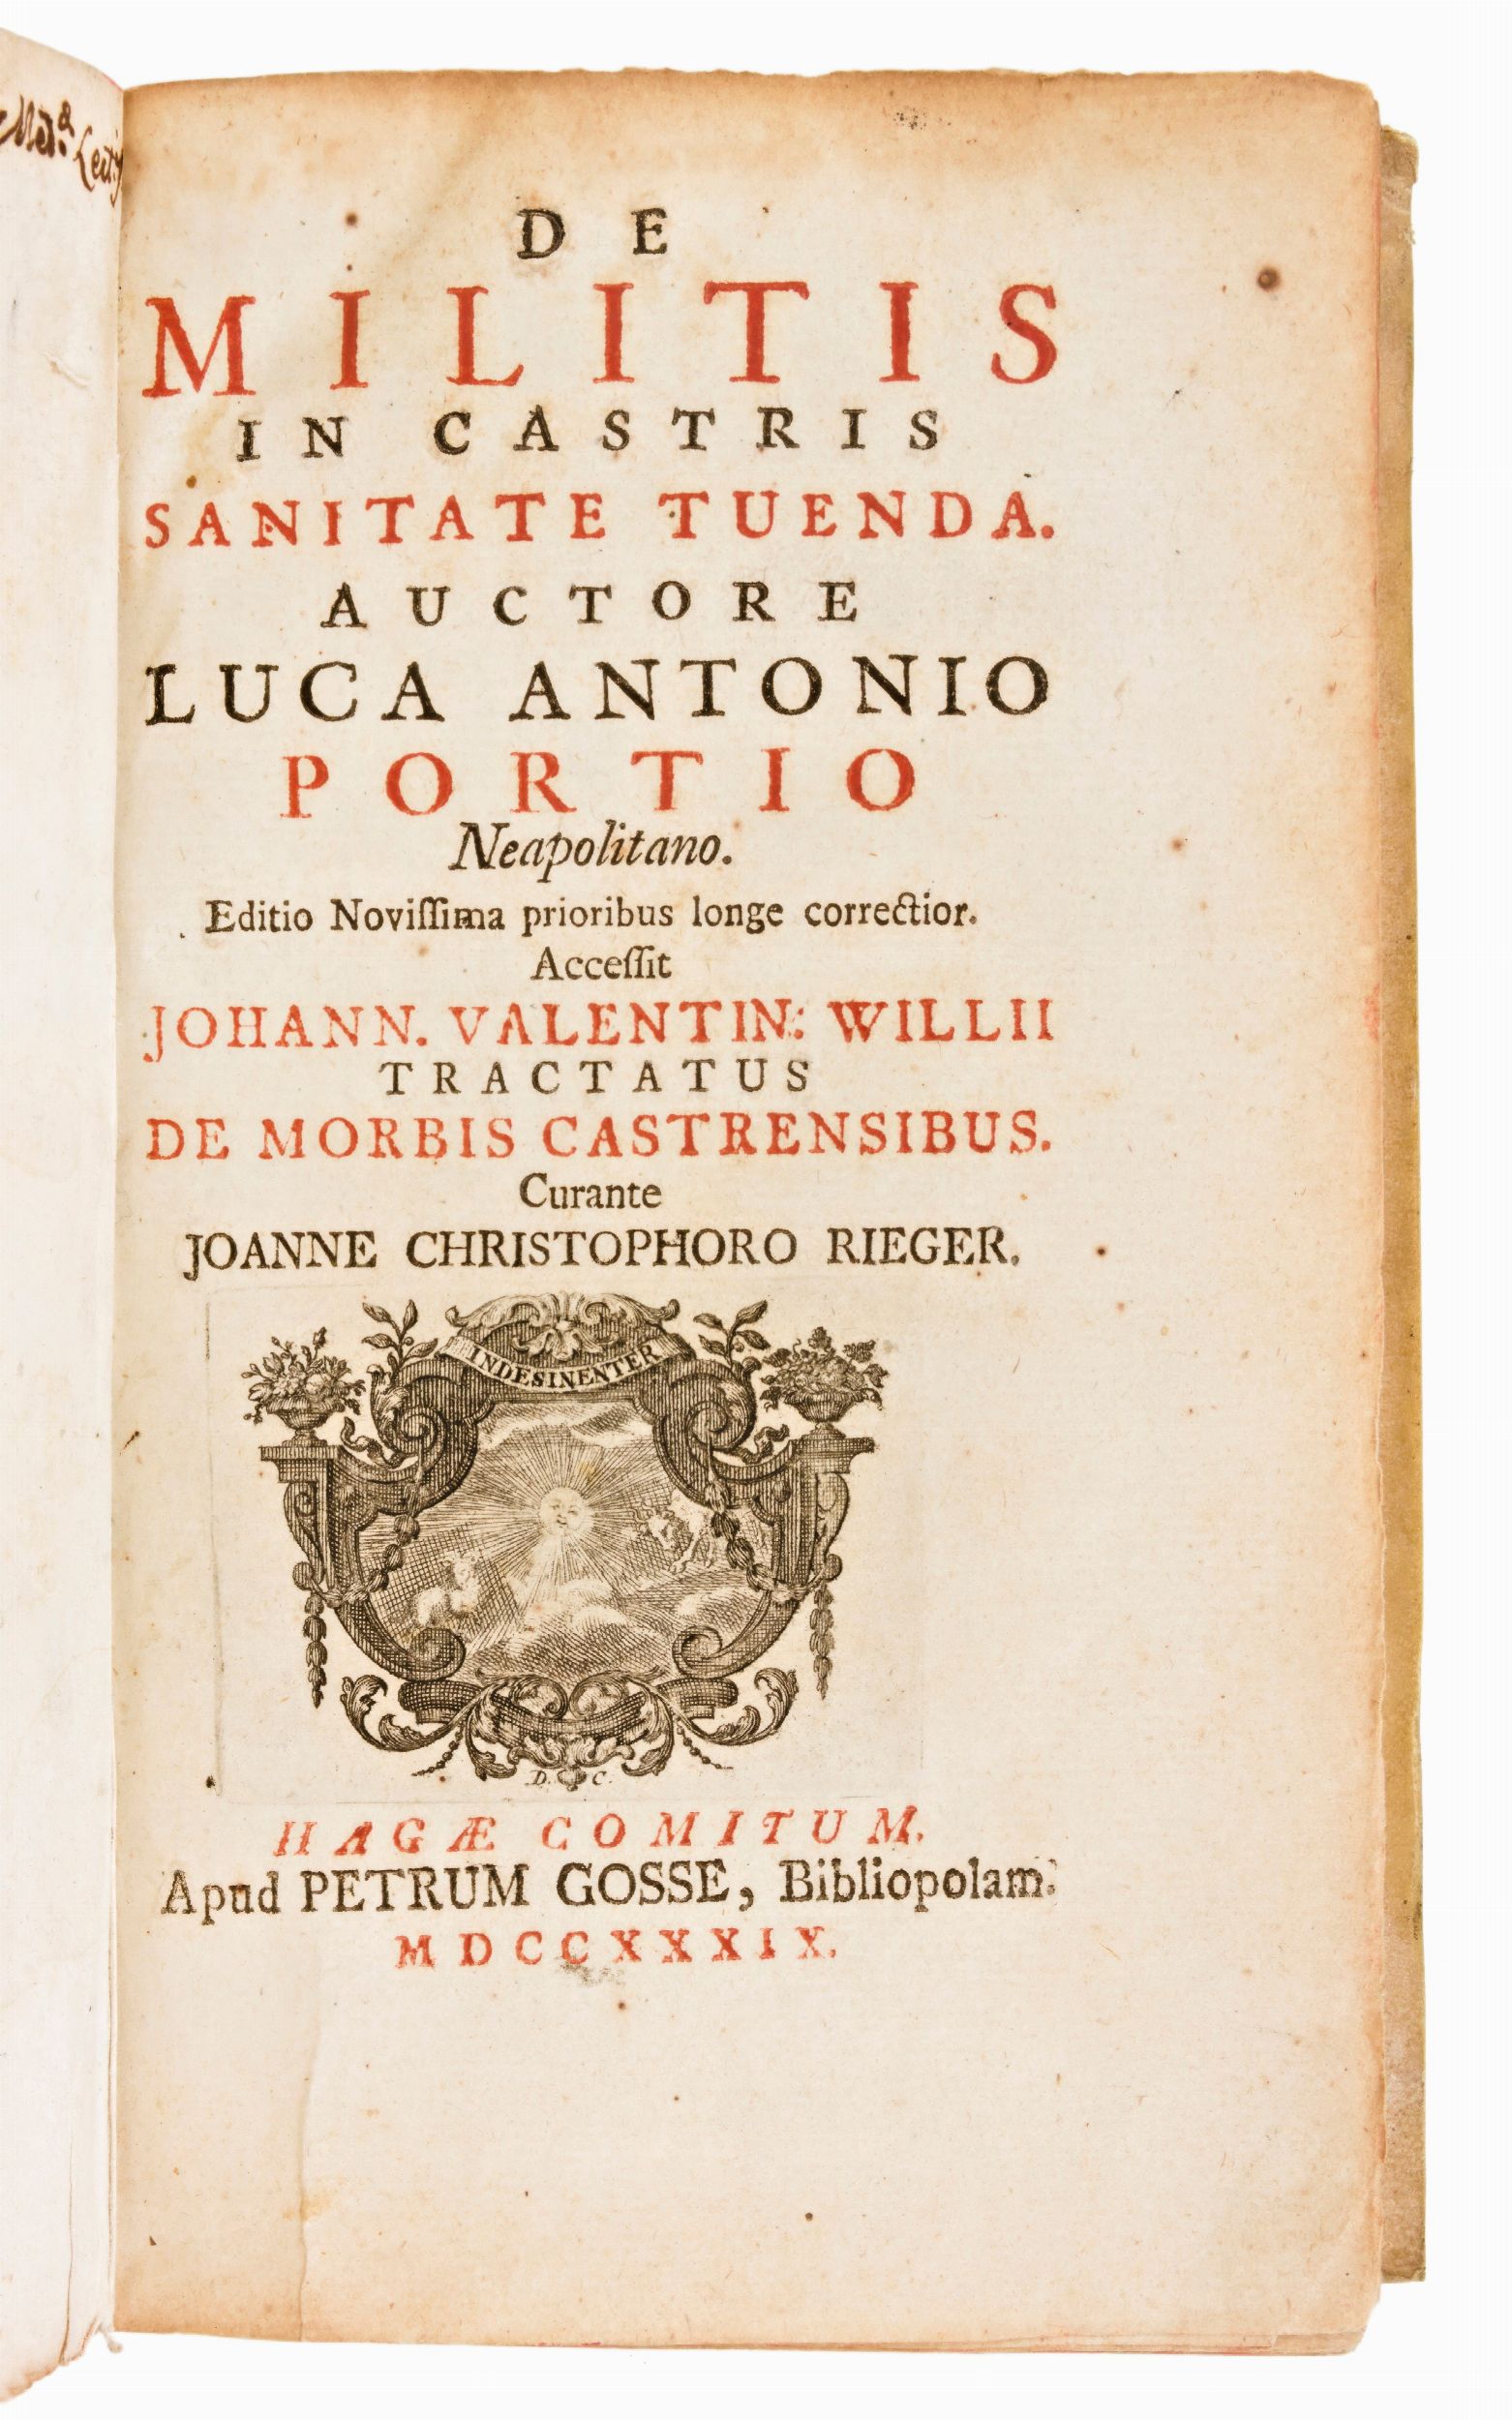 DE
MILITIS
IN CASTRIS
SANITATE TUENDA.
AUCTORE
LUCA ANTONIO
PORTIO
Neapolitano.
Editio Noviſſima prioribus longe correctior.
Acceſſit
JOHANN. VALENTIN: WILLII
TRACTATUS
DE MORBIS CASTRENSIBUS.
Curante
JOANNE CHRISTOPHORO RIEGER.
INDESINENTER
D. C.
HAGÆ COMITUM.
Apud PETRUM GOSSE, Bibliopolam.
MDCCXXXIX.